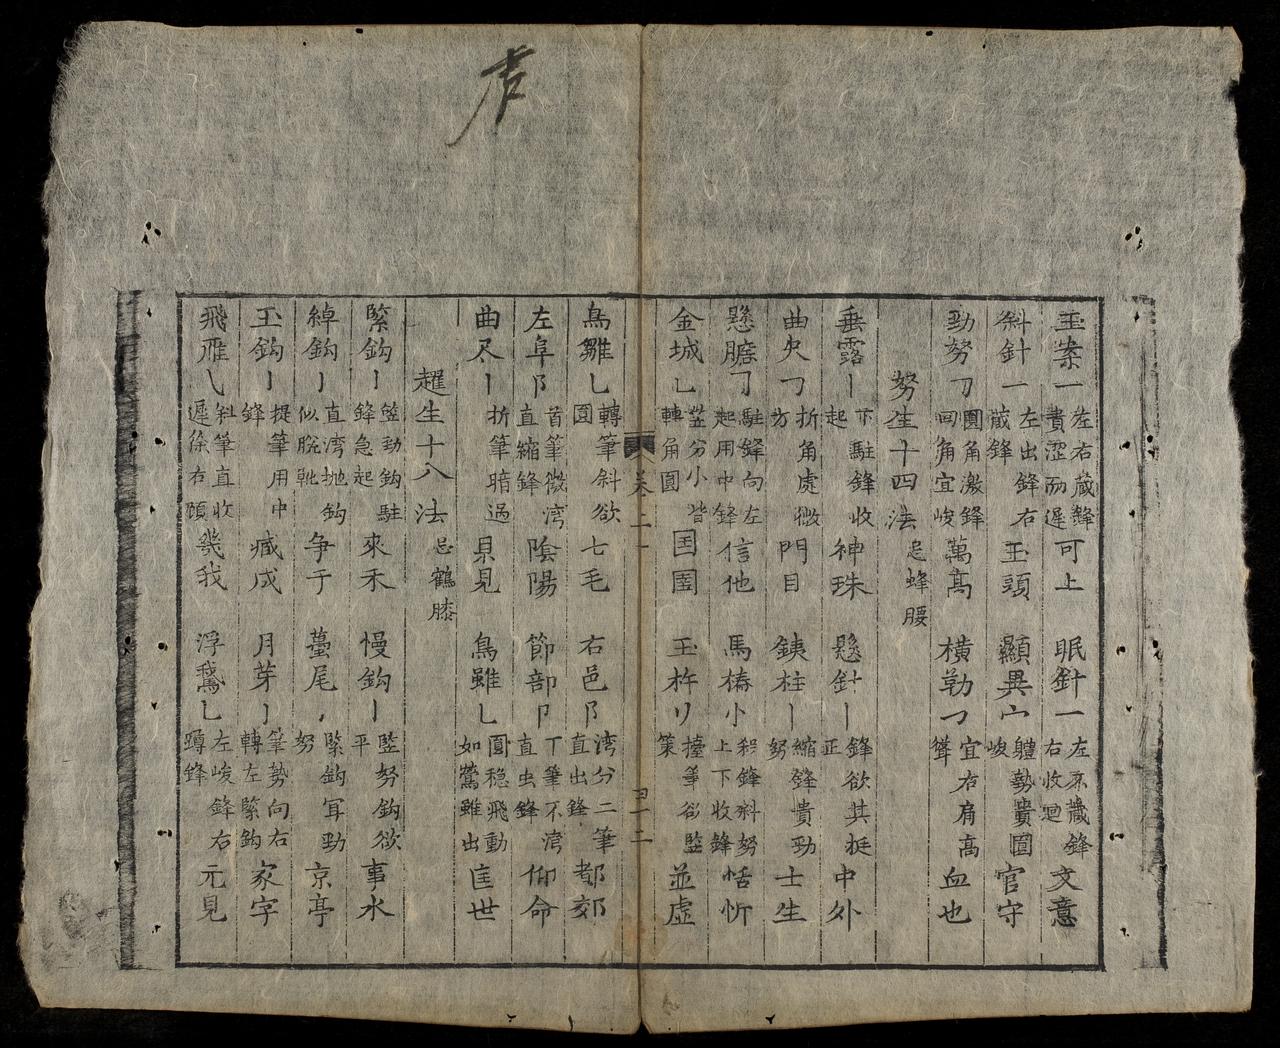 玉案一左右藏鋒貴澀而遲可上 眠針一左原藏鋒右收廻文意
斜針一左出鋒右藏鋒玉頭 顯異宀體勢貴圓峻官守
勁努㇆圓角激鋒回角宜峻萬高 橫勒㇇宜右肩高聳血也
努生十四法忌蜂腰
垂露丨下駐鋒收起神珠 懸針丨鋒欲其挺正中外
曲尺㇆折角處微方門目 鉄柱丨縮鋒貴勁努士生
懸膽㇆駐鋒向左起用中鋒信他 馬樁小斜鋒斜努上下收鋒恬忻
金城乚竖分小皆轉角圓国圄 玉杵刂擡筆欲監策並虛
卷二 四十二
鳥雛乚轉筆斜欲圓七毛 右邑阝湾分二筆直出鋒都郊
左阜阝首筆微湾直縮鋒陰陽 節部卩丁筆不湾直虫鋒仰命
曲尺丨折筆暗過貝見 鳥雖乚圓穩飛動如鶯雖出匡世
趯生十八法忌鶴膝
緊鈎亅竖勁鈎駐鋒急起來禾 慢鈎亅監努鈎欲平事水
綽鈎亅直湾抛鈎似脫靴争于 蠆尾,緊鈎耳勁努京亭
玉鈎亅提筆用中鋒臧成 月芽亅筆勢向右轉左緊鈎家字
飛雁乀斜筆直收遲徐右顧幾我 浮鵞乚左峻鋒右蹲鋒元見